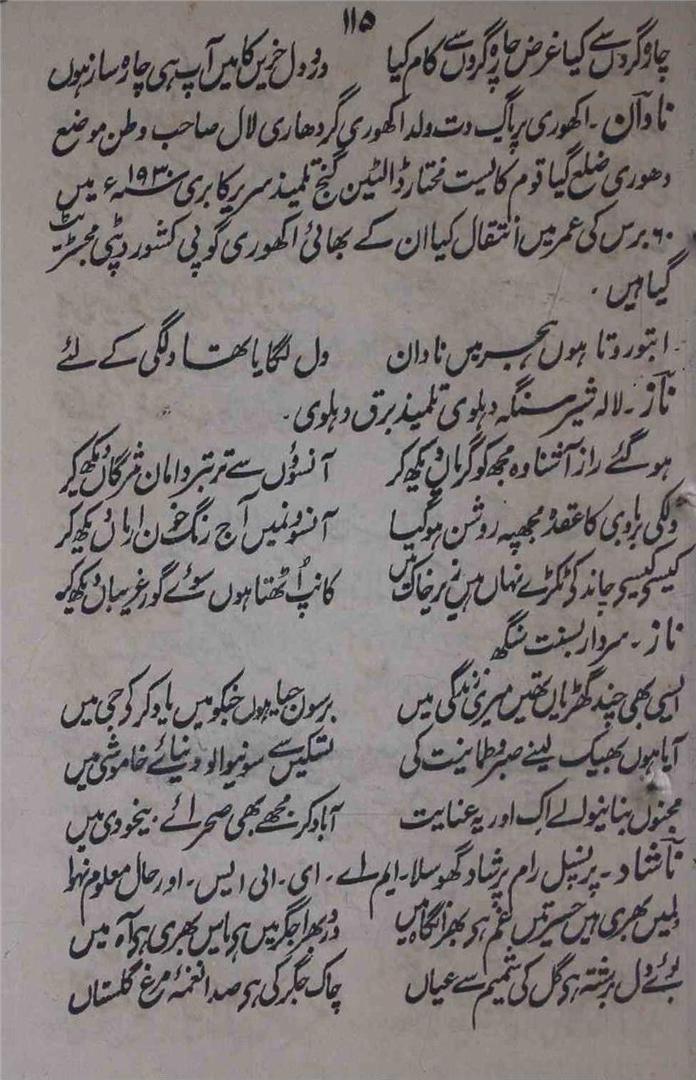 ۱۱۵
چارہ گروں سے کیا غرض چارہ گروں سے کام کیا درد دل حزیں کا میں آپ ہی چارہ ساز ہوں
نادان۔ اکھوری پراگ دت ولد اکھوری گردھاری لال صاحب وطن موضع
دھوری ضلع گیا قوم کایست مختار ڈالٹین گنج تلمیذ سریر کابری ۱۹۳۰ء میں
۶۰ برس کی عمر میں انتقال کیا ان کے بھائی اکھوری گوپی کشور ڈپٹی مجسٹریٹ
گیا ہیں۔
ابتو روتا ہوں ہجر میں نادان دل لگایا تھا دلگی کے لئے
ناز۔ لالہ شیر سنگہ دہلوی تلمیذ برق دہلوی۔
ہو گئے راز آشنا وہ مجھ کو گریاں دیکھ کر آنسوؤں سے تر بتر دامان مژگاں دیکھ کر
دلکی بربادی کا عقدہ مجھپہ روشن ہو گیا آنسوؤنمیں آج رنگ خون ارماں دیکھ کر
کیسے کیسے چاند کے ٹکڑے نہاں ہیں زیر خاک کانپ اُٹھتا ہوں سوئے گور غریباں دیکھ کر
ناز۔ سردار بسنت سنگھ
ایسی بھی چند گھڑیاں تھیں میری زندگی میں برسوں جیا ہوں جنکو میں یاد کر کے جی میں
آیا ہوں بھیک لینے صبر و طمانیت کی تسکیں سے سونیوالو دنیائے خاموشی میں
مجنوں بنانیوالے اک اور یہ عنایت آباد کر مجھے بھی صحرائے بیخودی میں
ناشاد۔ پرنسپل رام پرشاد گھوسلا۔ ایم اے۔ ای۔ ائی ایس۔ اور حال معلوم نہوا
دلمیں بھری ہیں حسرتیں غم ہے بھرا نگاہ میں درد بھرا جگر میں ہے یاس بھری ہے آہ میں
بوئے دل برشتہ ہے گل کی شمیم سے عیاں چاک جگر کی ہے صدا نغمۂ مرغ گلستاں